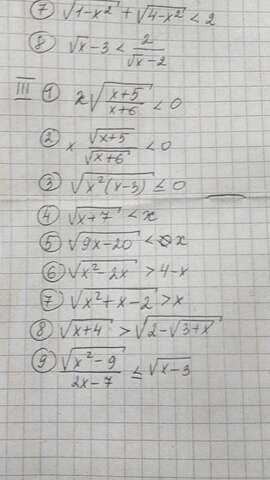 ⑦ √(1-x²) + √(4-x²) < 2
⑧ √x - 3 < 2/(√x - 2)
III ① x√((x+5)/(x+6)) < 0
② x √(x+5)/√(x+6) < 0
③ √(x²(x-3)) ≤ 0
④ √(x+7) < x
⑤ √(9x-20) < x
⑥ √(x²-2x) > 4-x
⑦ √(x²+x-2) > x
⑧ √(x+4) > √(2-√(3+x))
⑨ √(x²-9)/(2x-7) ≤ √(x-3)